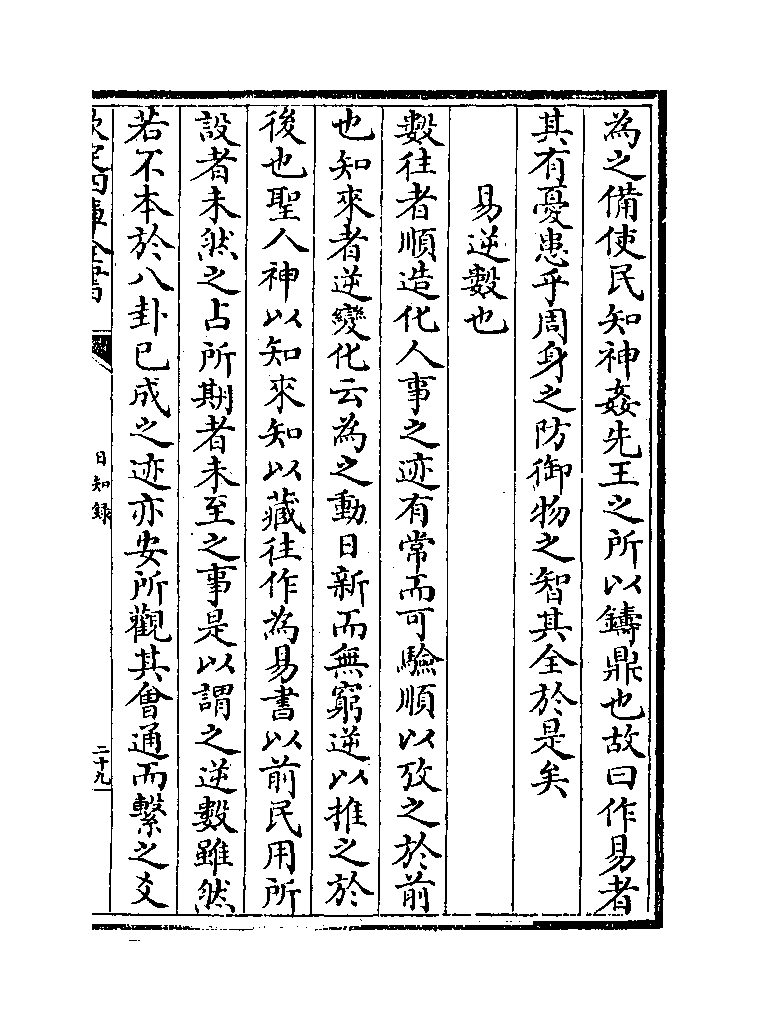 為之備使民知神姦先王之所以鑄鼎也故曰作易者
其有憂患乎周身之防御物之智其全於是矣
易逆數也
數往者順造化人事之迹有常而可驗順以攷之於前
也知來者逆變化云為之動日新而無窮逆以推之於
後也聖人神以知來知以藏往作為易書以前民用所
設者未然之占所期者未至之事是以謂之逆數雖然
若不本於八卦已成之迹亦安所觀其㑹通而繫之爻
欽定四庫全書
日知録
二十九